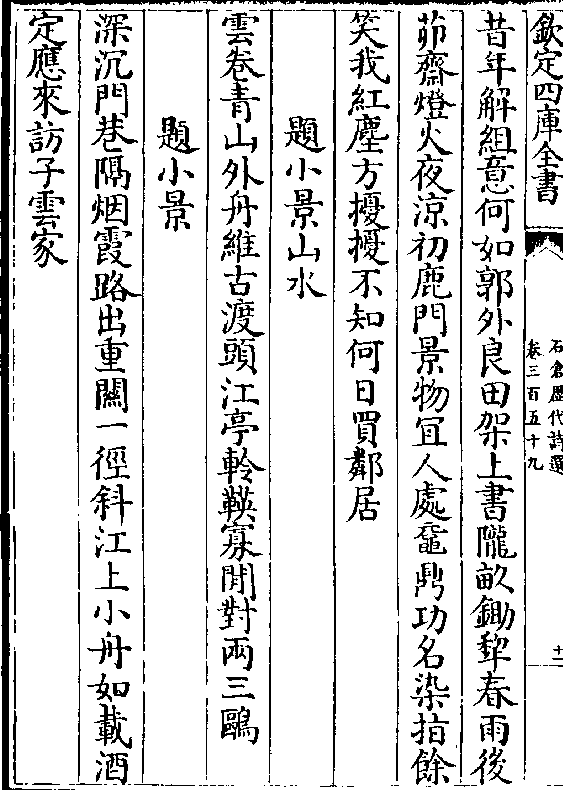 欽定四庫全書
石倉歷代詩選
卷三百五十九
十二
昔年解組意何如郭外良田架上書隴畝鋤犂春雨後
茆齋燈火夜涼初鹿門景物宜人處鼂鼎功名染指餘
笑我紅塵方擾擾不知何日買鄰居
題小景山水
雲卷青山外舟維古渡頭江亭軨䩕寡閒對兩三鷗
題小景
深沉門巷隔烟霞路出重闗一徑斜江上小舟如載酒
定應來訪子雲家